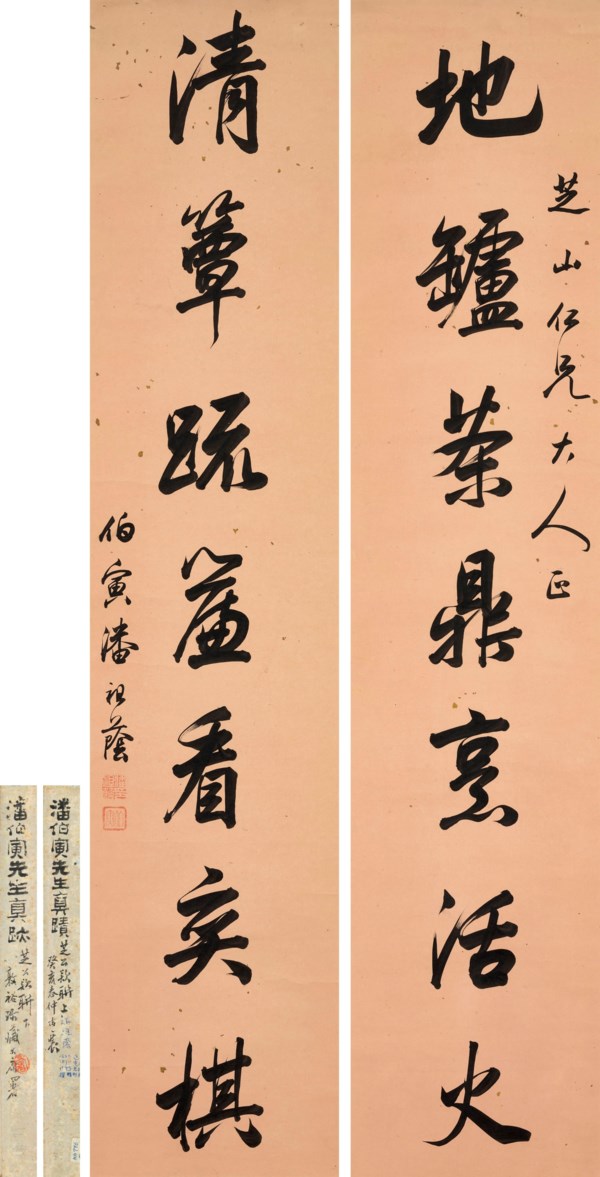 地鑪茶鼎烹活火
芝山仁兄大人正
清簟疏簾看奕棋
伯寅潘祖蔭
潘伯寅先生真蹟
芝公款聯上
癸亥春仲
潘伯寅先生真跡
芝公款聯下